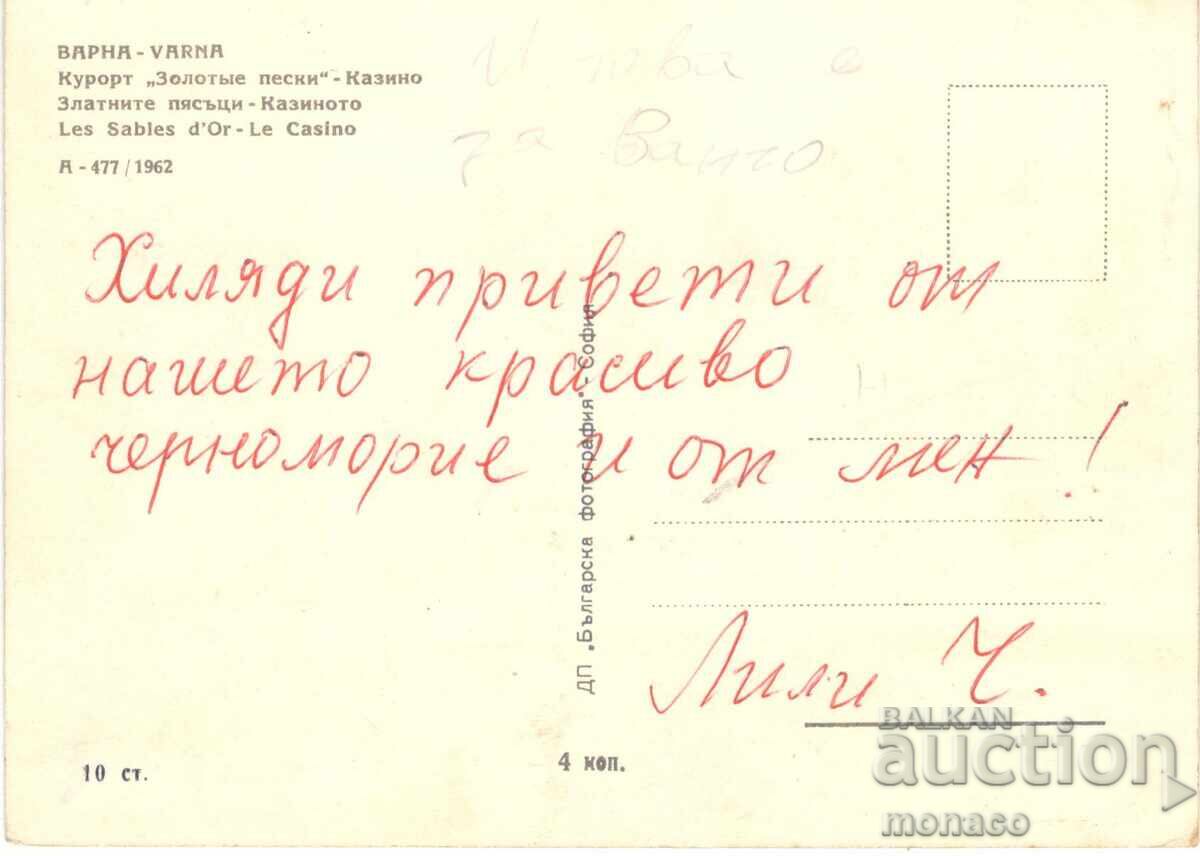 ВАРНА - VARNA
Курорт „Золотые пески“ - Казино
Златните пясъци - Казиното
Les Sables d'Or - Le Casino
А - 477 / 1962
И това е
за Ванчо
Хиляди привети от
нашето красиво
черноморие и от мен!
Лили Ч.
ДП „Българска фотография“ - София
10 ст.
4 коп.
BALKAN
auction
monaco